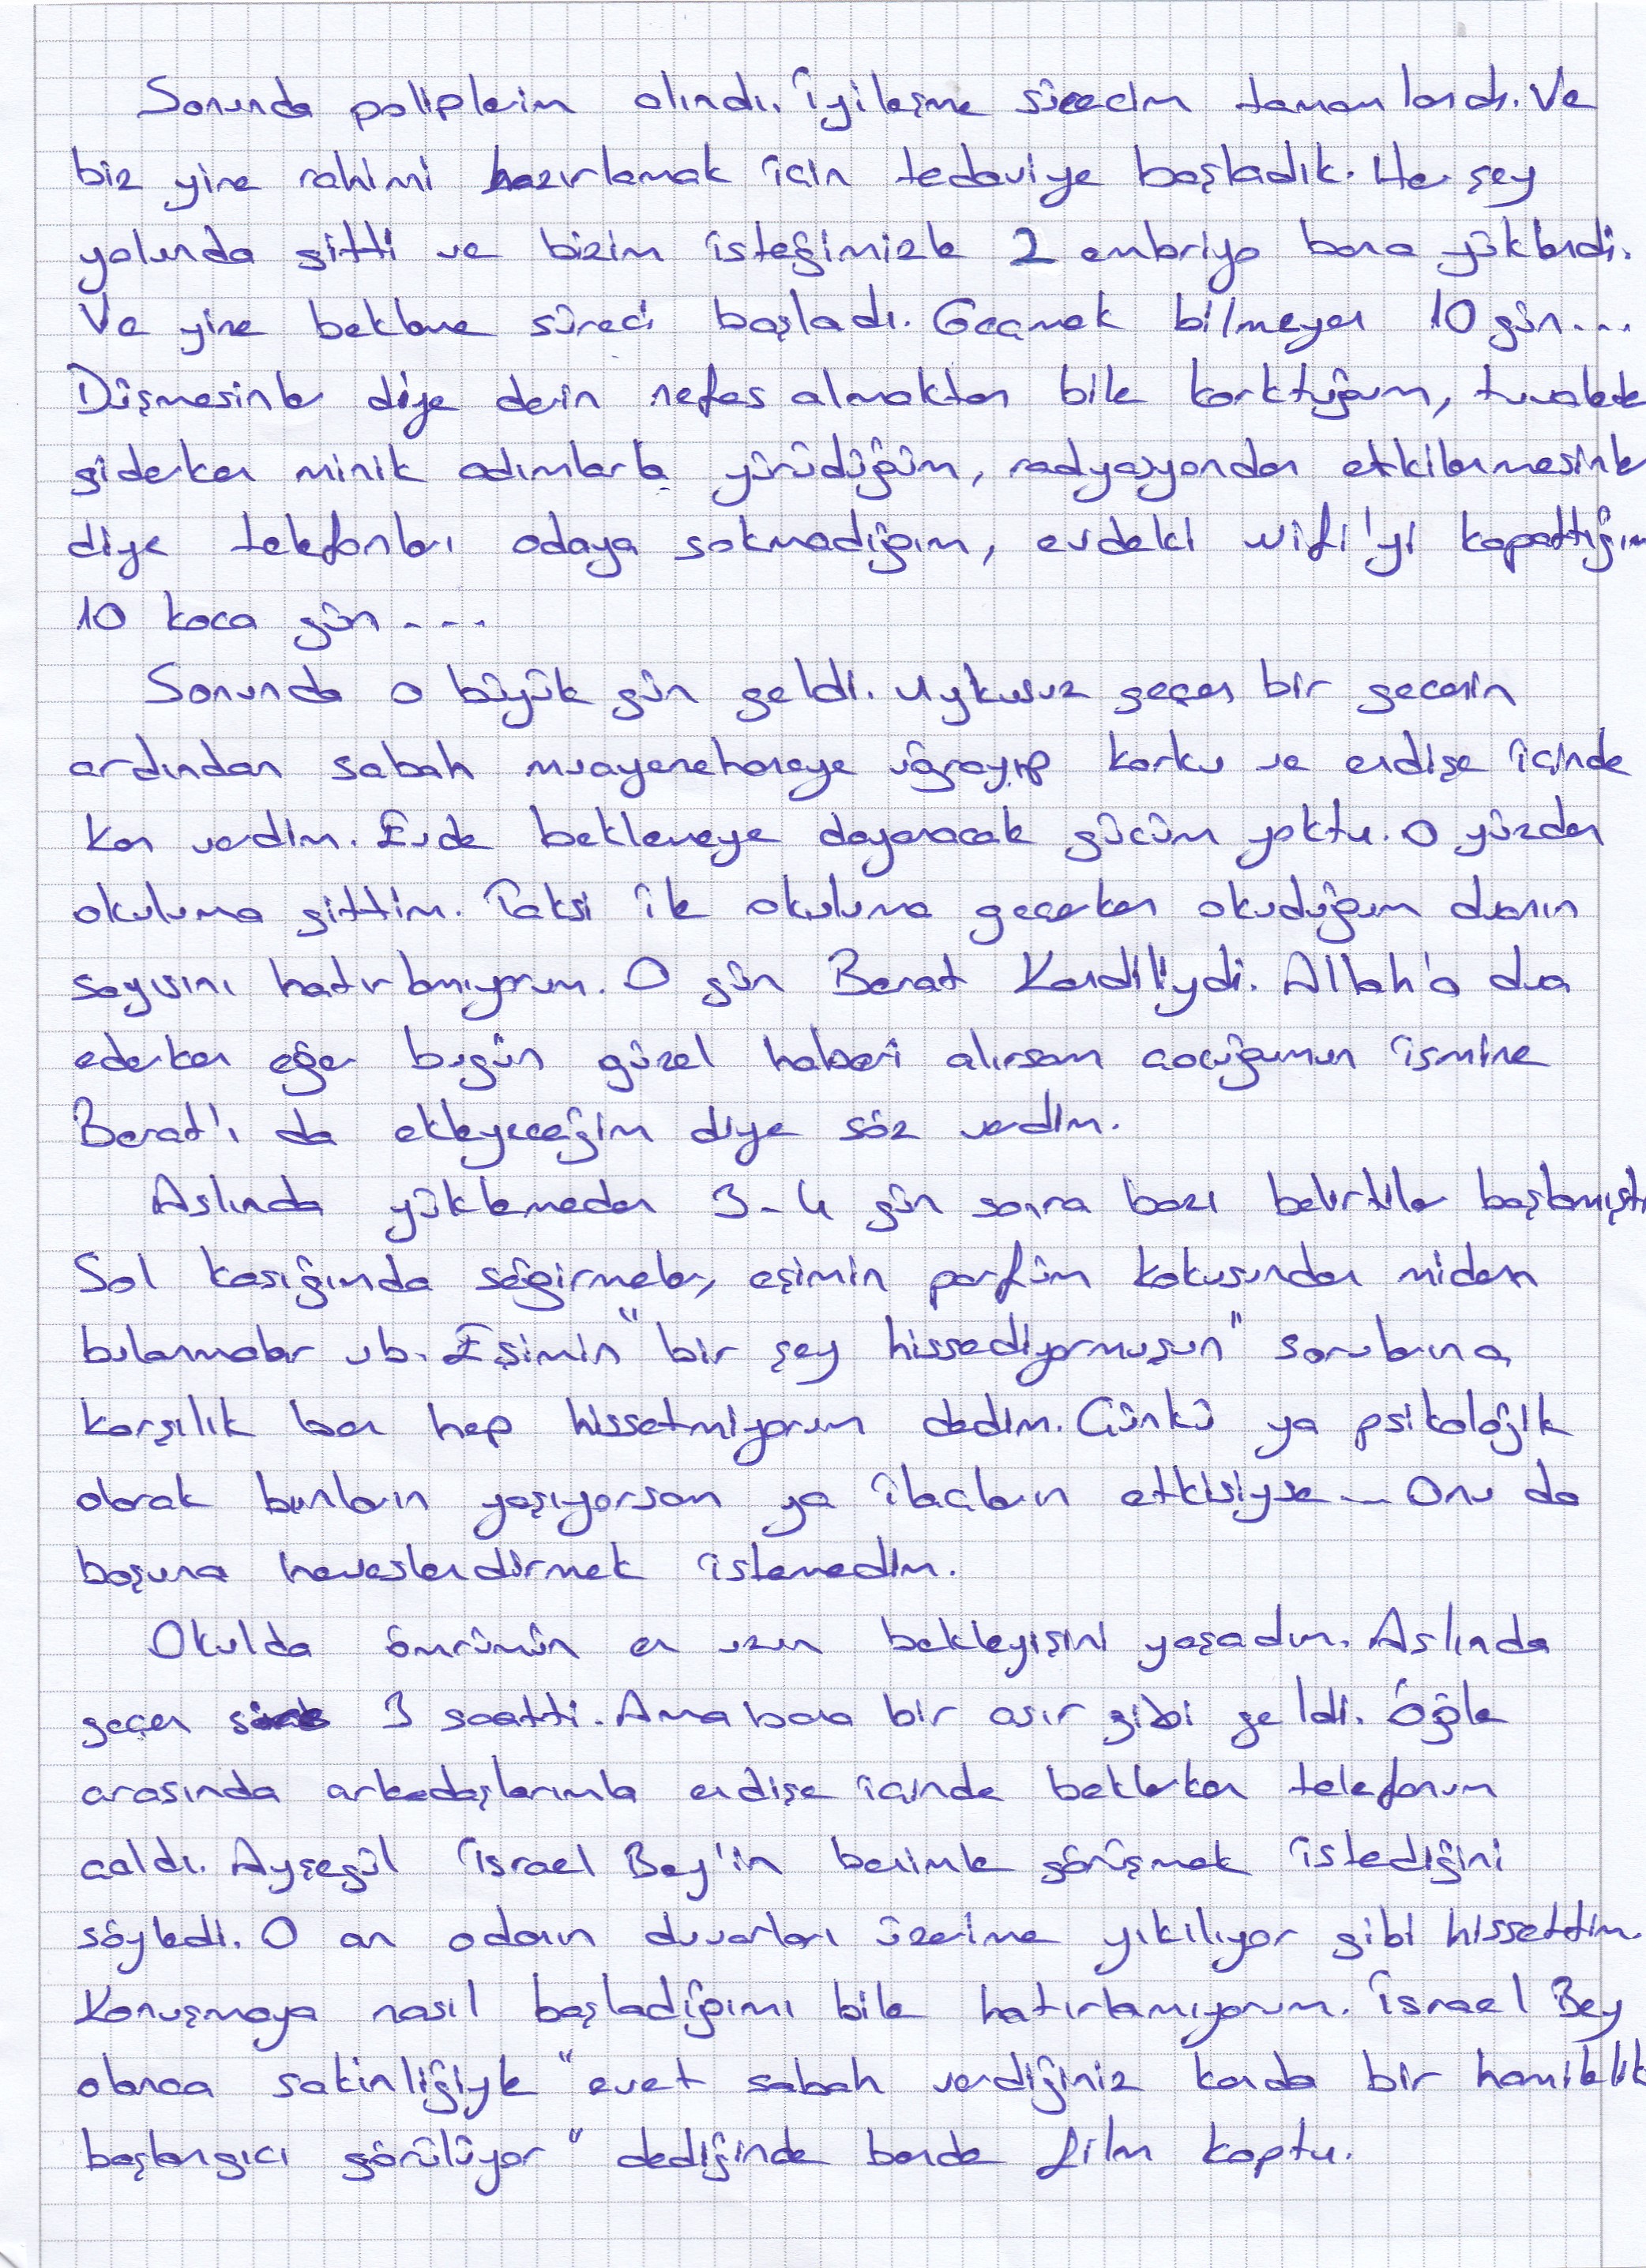 Sonunda poliplerim alındı. İyileşme sürecim tamamlandı. Ve
biz yine rahimi hazırlamak için tedaviye başladık. Her şey
yolunda gitti ve bizim isteğimizle 2 embriyo bana yüklendi.
Ve yine bekleme süreci başladı. Geçmek bilmeyen 10 gün...
Düşmesinler diye derin nefes almaktan bile korktuğum, tuvalete
giderken minik adımlarla yürüdüğüm, radyasyondan etkilenmesinler
diye telefonları odaya sokmadığım, evdeki wifi'yi kapattığım
10 koca gün....
Sonunda o büyük gün geldi. Uykusuz geçen bir gecenin
ardından sabah muayenehaneye uğrayıp korku ve endişe içinde
kan verdim. Evde beklemeye dayanacak gücüm yoktu. O yüzden
okuluma gittim. Taksi ile okuluma geçerken okuduğum duanın
sayısını hatırlamıyorum. O gün Berat Kandiliydi. Allah'a dua
ederken eğer bugün güzel haberi alırsam çocuğumun ismine
Berat'ı da ekleyeceğim diye söz verdim.
Aslında yüklemeden 3-4 gün sonra bazı belirtiler başlamıştı
Sol kasığımda seğirmeler, eşimin parfüm kokusundan midem
bulanmalar vb. Eşimin "bir şey hissediyormusun" sorularına
karşılık ben hep hissetmiyorum dedim. Çünkü ya psikolojik
olarak bunları yaşıyorsam ya ilaçların etkisiyse... Onu da
boşuna heveslendirmek istemedim.
Okulda ömrümün en uzun bekleyişini yaşadım. Aslında
geçen 3 saatti. Ama bana bir asır gibi geldi. Öğle
arasında arkadaşlarımla endişe içinde beklerken telefonum
çaldı. Ayşegül İsrael Bey'in benimle görüşmek istediğini
söyledi. O an odanın duvarları üzerime yıkılıyor gibi hissettim.
Konuşmaya nasıl başladığımı bile hatırlamıyorum. İsrael Bey
olanca sakinliğiyle "evet sabah verdiğiniz kanda bir hamilelik
başlangıcı görülüyor" dediğinde bende film koptu.